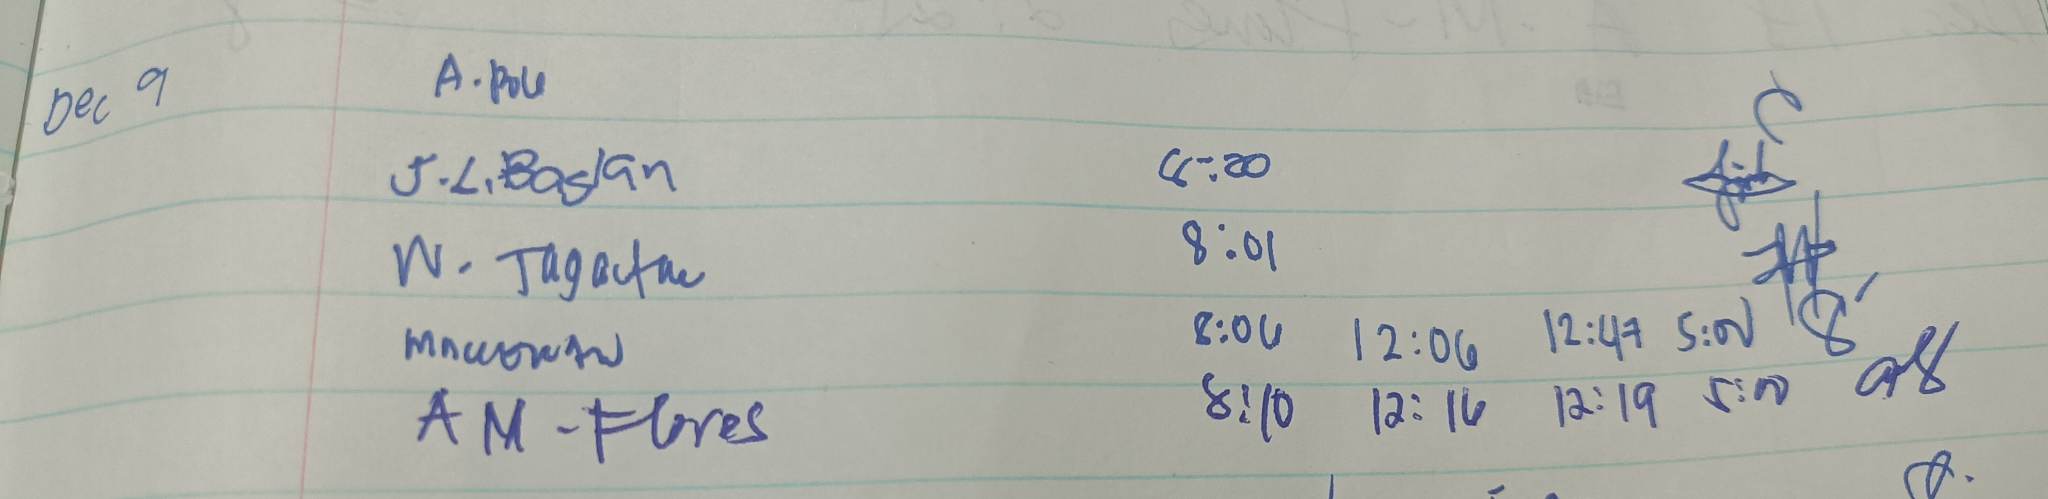 Dec 9 A. Pole
J.L. Baslan 8:20
W. Tagactac 8:01
8:06 12:06 12:47 5:00
AM - Flores 8:10 12:16 12:19 5:00